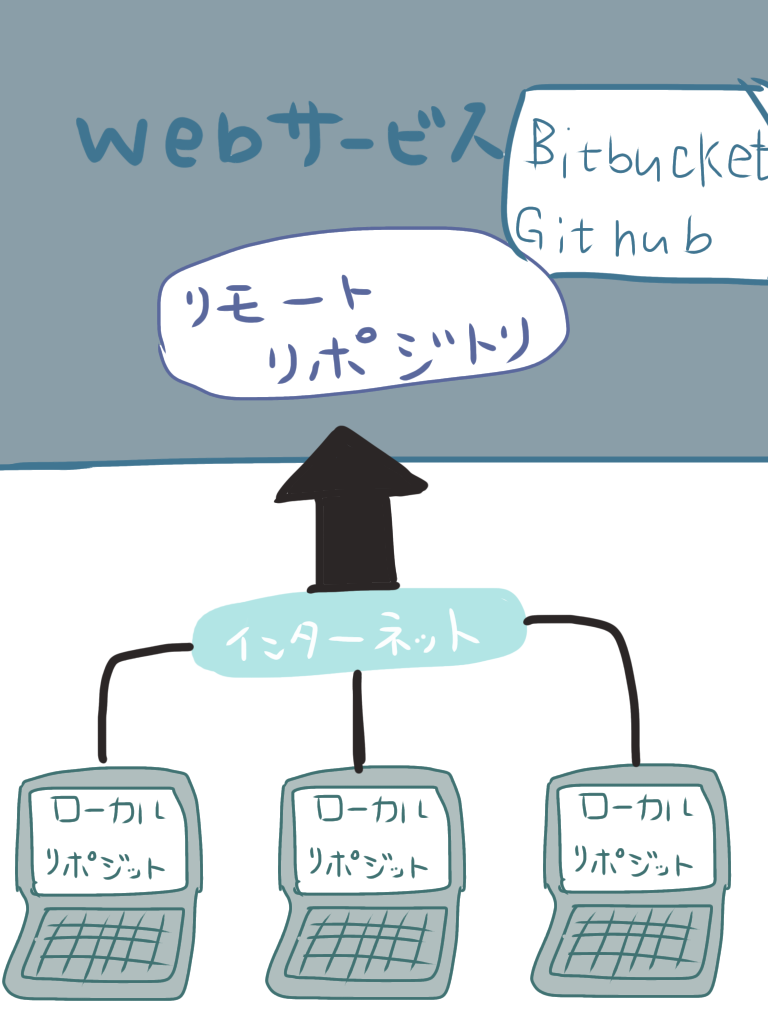 Webサービス
Bitbucket
Github
リモート
リポジトリ
インターネット
ローカル
リポジット
ローカル
リポジット
ローカル
リポジット